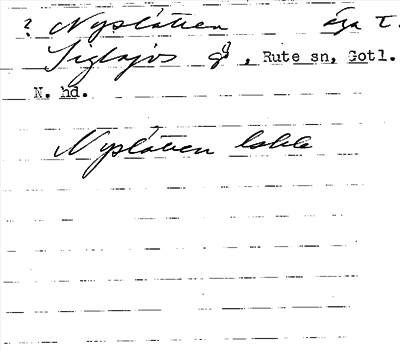 ? Nyslåtten äga t.
Siglajvs gd, Rute sn, Gotl.
N. hd.
Nyslåtten